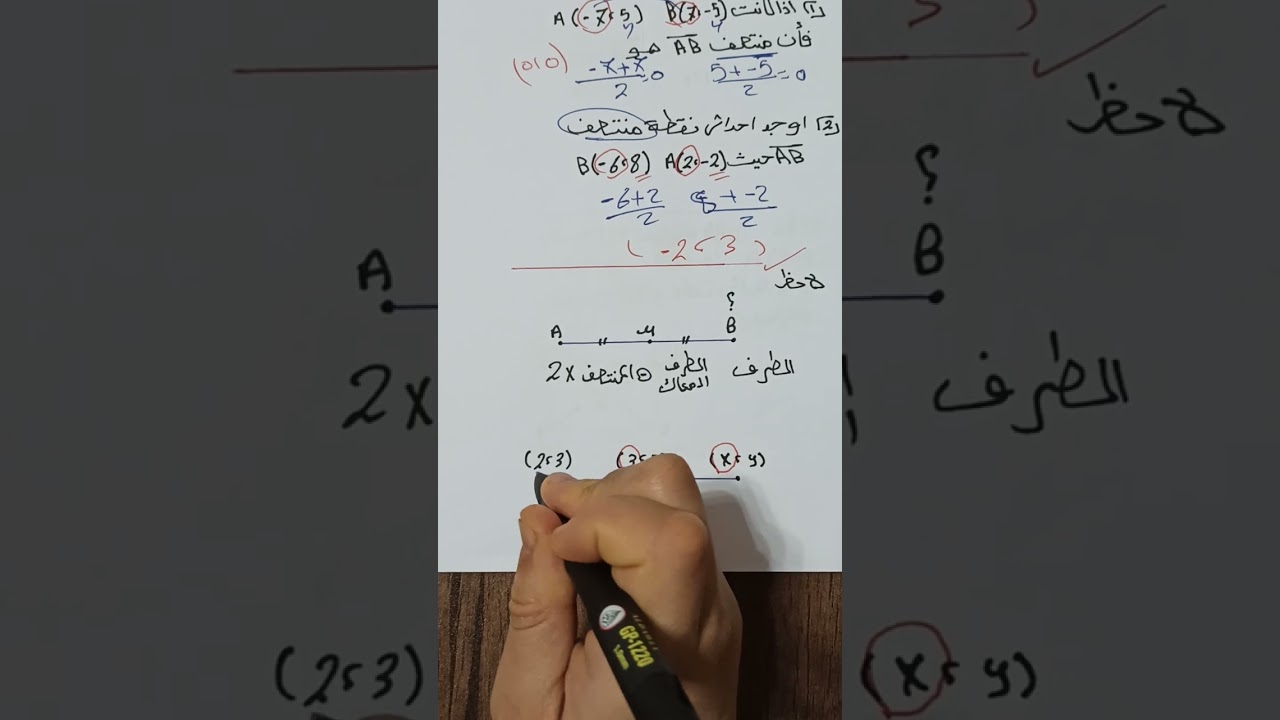 1] اذا كانت A(-7،5) B(7،-5)
فأن منتصف AB هو
(0،0) -7+7/2=0 5+-5/2=0
2] اوجد احداثي نقطة منتصف
AB حيث A(2،-2) B(-6،8)
-6+2/2 8+-2/2
(-2،3)
لاحظ
؟
A M B
الطرف الطرف المعاك ⊖ المنتصف 2x
(2،3) (3، (x،y)
GP-1220